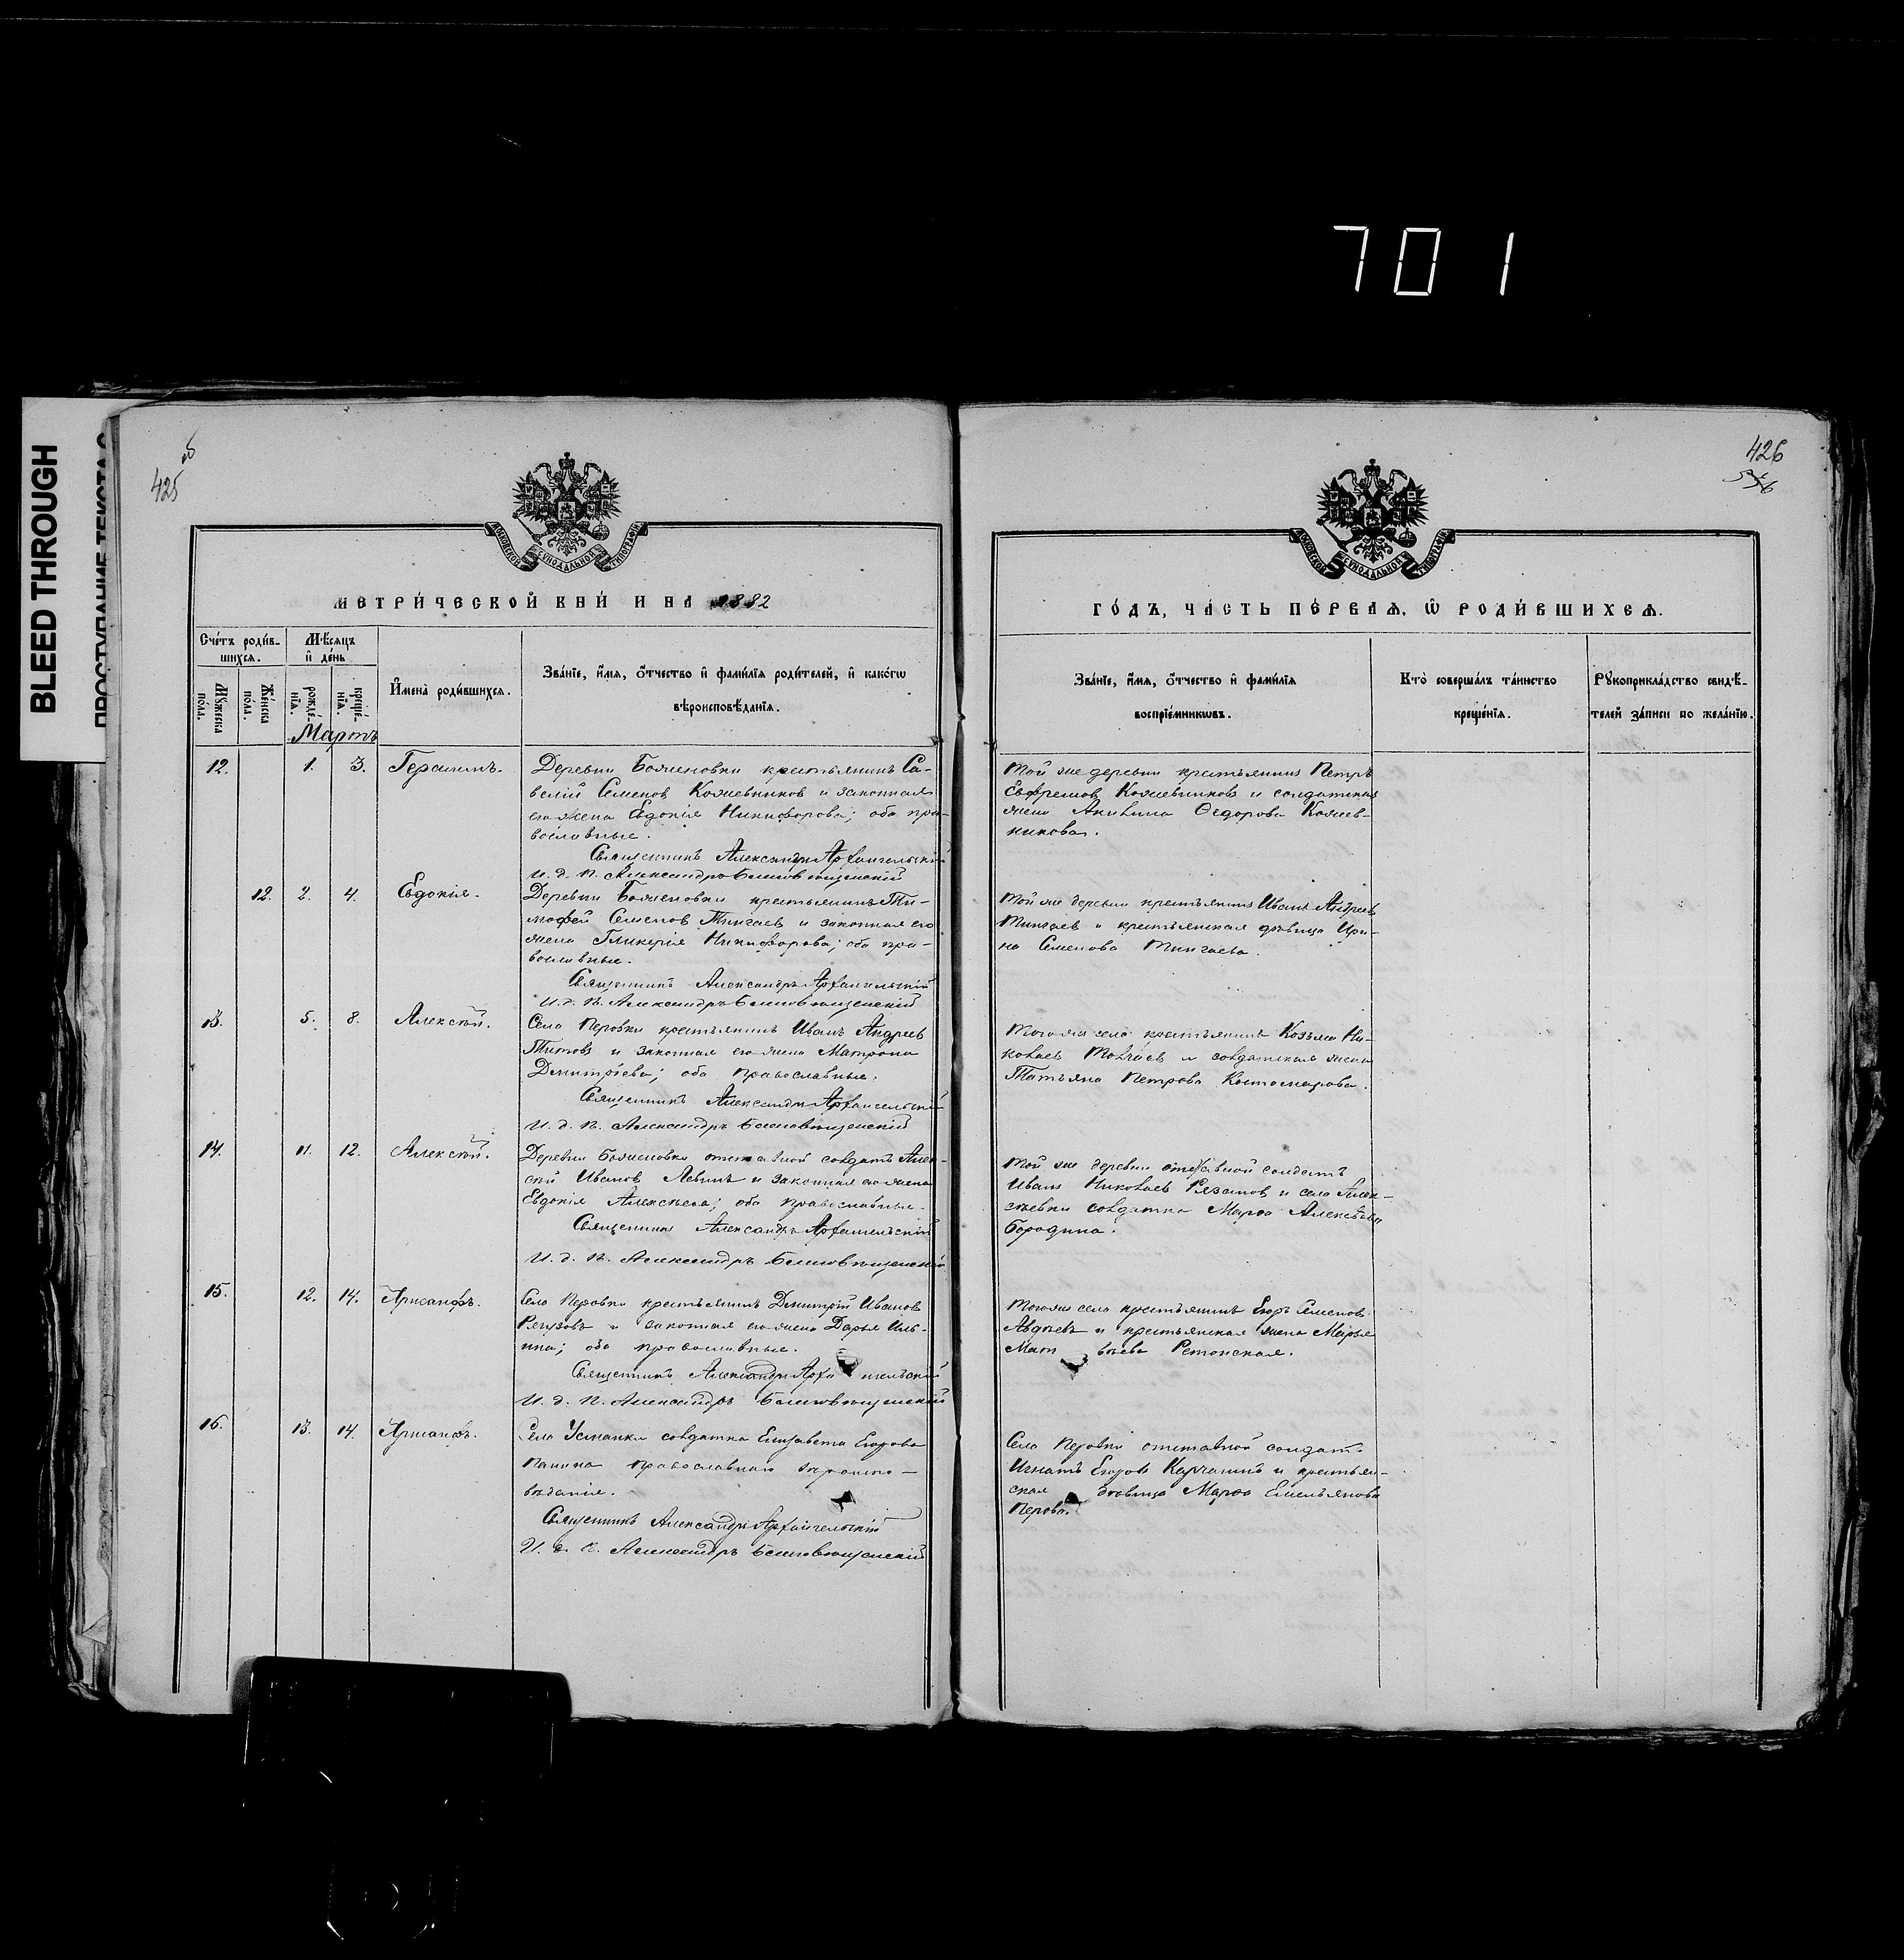 701
BLEED THROUGH
425 об
426
МОСКОВСКОЙ СѴНОДАЛЬНОЙ ТИПОГРАФІИ
МОСКОВСКОЙ СѴНОДАЛЬНОЙ ТИПОГРАФІИ
МЕТРИ́ЧЕСКОЙ КНИ́ И НА 1882
Сче́тъ роди́в-
шихсѧ.
Мѣ́сѧцъ
и҆ де́нь
Мꙋ́жеска
по́ла.
Же́нска
по́ла.
рожде́-
нїѧ.
креще́-
нїѧ.
И҆мена̀ роди́вшихсѧ.
Зва́нїе, и҆́мѧ, ѻ҆́тчество и҆ фами́лїѧ роди́телей, и҆ како́гѡ
вѣроисповѣ́данїѧ.
Мартъ
12. 1. 3. Герасимъ.
Деревни Боженовки крестьянинъ Са-
велій Семенов Кожевников и законная
его жена Евдокія Никифорова; оба пра-
вославные.
Священникъ Александръ Архангельскій
И. д. п. Александръ Благовѣщенскій
12. 2. 4. Евдокія.
Деревни Боженовки крестьянинъ Ти-
мофей Семенов Тингаев и законная его
жена Гликерія Никифорова; оба пра-
вославные.
Священникъ Александръ Архангельскій
И. д. п. Александръ Благовѣщенскій
13. 5. 8. Алексѣй.
Села Перовки крестьянинъ Иванъ Андреев
Титовъ и законная его жена Матрона
Димитріева; оба православные.
Священникъ Александръ Архангельскій
И. д. п. Александръ Благовѣщенскій
14. 11. 12. Алексѣй.
Деревни Боженовки отставной солдатъ Алек-
сѣй Иванов Левинъ и законная его жена
Евдокія Алексѣева; оба православные.
Священникъ Александръ Архангельскій
И. д. п. Александръ Благовѣщенскій
15. 12. 14. Хрисанфъ.
Села Перовки крестьянинъ Димитрій Иванов
и законная его жена Дарья Иль-
ина; оба православные.
Священникъ Александръ Арха нгельскій
И. д. п. Александръ Благовѣщенскій
16. 13. 14. Хрисанфъ.
Села Усманки солдатка Елизавета Егорова
Панина православнаго вѣроиспо-
вѣданія.
Священникъ Александръ Архангельскій
И. д. п. Александръ Благовѣщенскій
ГО́ДЪ, ЧА́СТЬ ПЕ́РВАѦ, Ѽ РОДИ́ВШИХСѦ.
Зва́нїе, и҆́мѧ, ѻ҆́тчество и҆ фами́лїѧ
воспрїе́мникѡвъ.
Кто̀ соверша́лъ та́инство
креще́нїѧ.
Рꙋкоприкла́дство свидѣ́-
телей за́писи по жела́нїю.
Той же деревни крестьянинъ Петръ
Евфремов Кожевниковъ и солдатская
жена Акилина Ѳедорова Кожев-
никова.
Той же деревни крестьянинъ Иванъ Андреев
Тингаев и крестьянская дѣвица Ири-
на Семенова Тингаева.
Того же села крестьянинъ Козьма Ни-
колаев Толчаев и солдатская жена
Татьяна Петрова Костомарова.
Той же деревни отставной солдатъ
Иванъ Николаев Рязанов и села Алек-
сѣевки солдатка Марѳа Алексѣева
Бородина.
Того же села крестьянинъ Егоръ Семенов
Авдѣевъ и крестьянская жена Марья
Мат вѣева Ретонская.
Села Перовки отставной солдатъ
Игнатъ Егоров Карчагинъ и крестьян-
ская дѣвица Марѳа Емельянова
Перова.